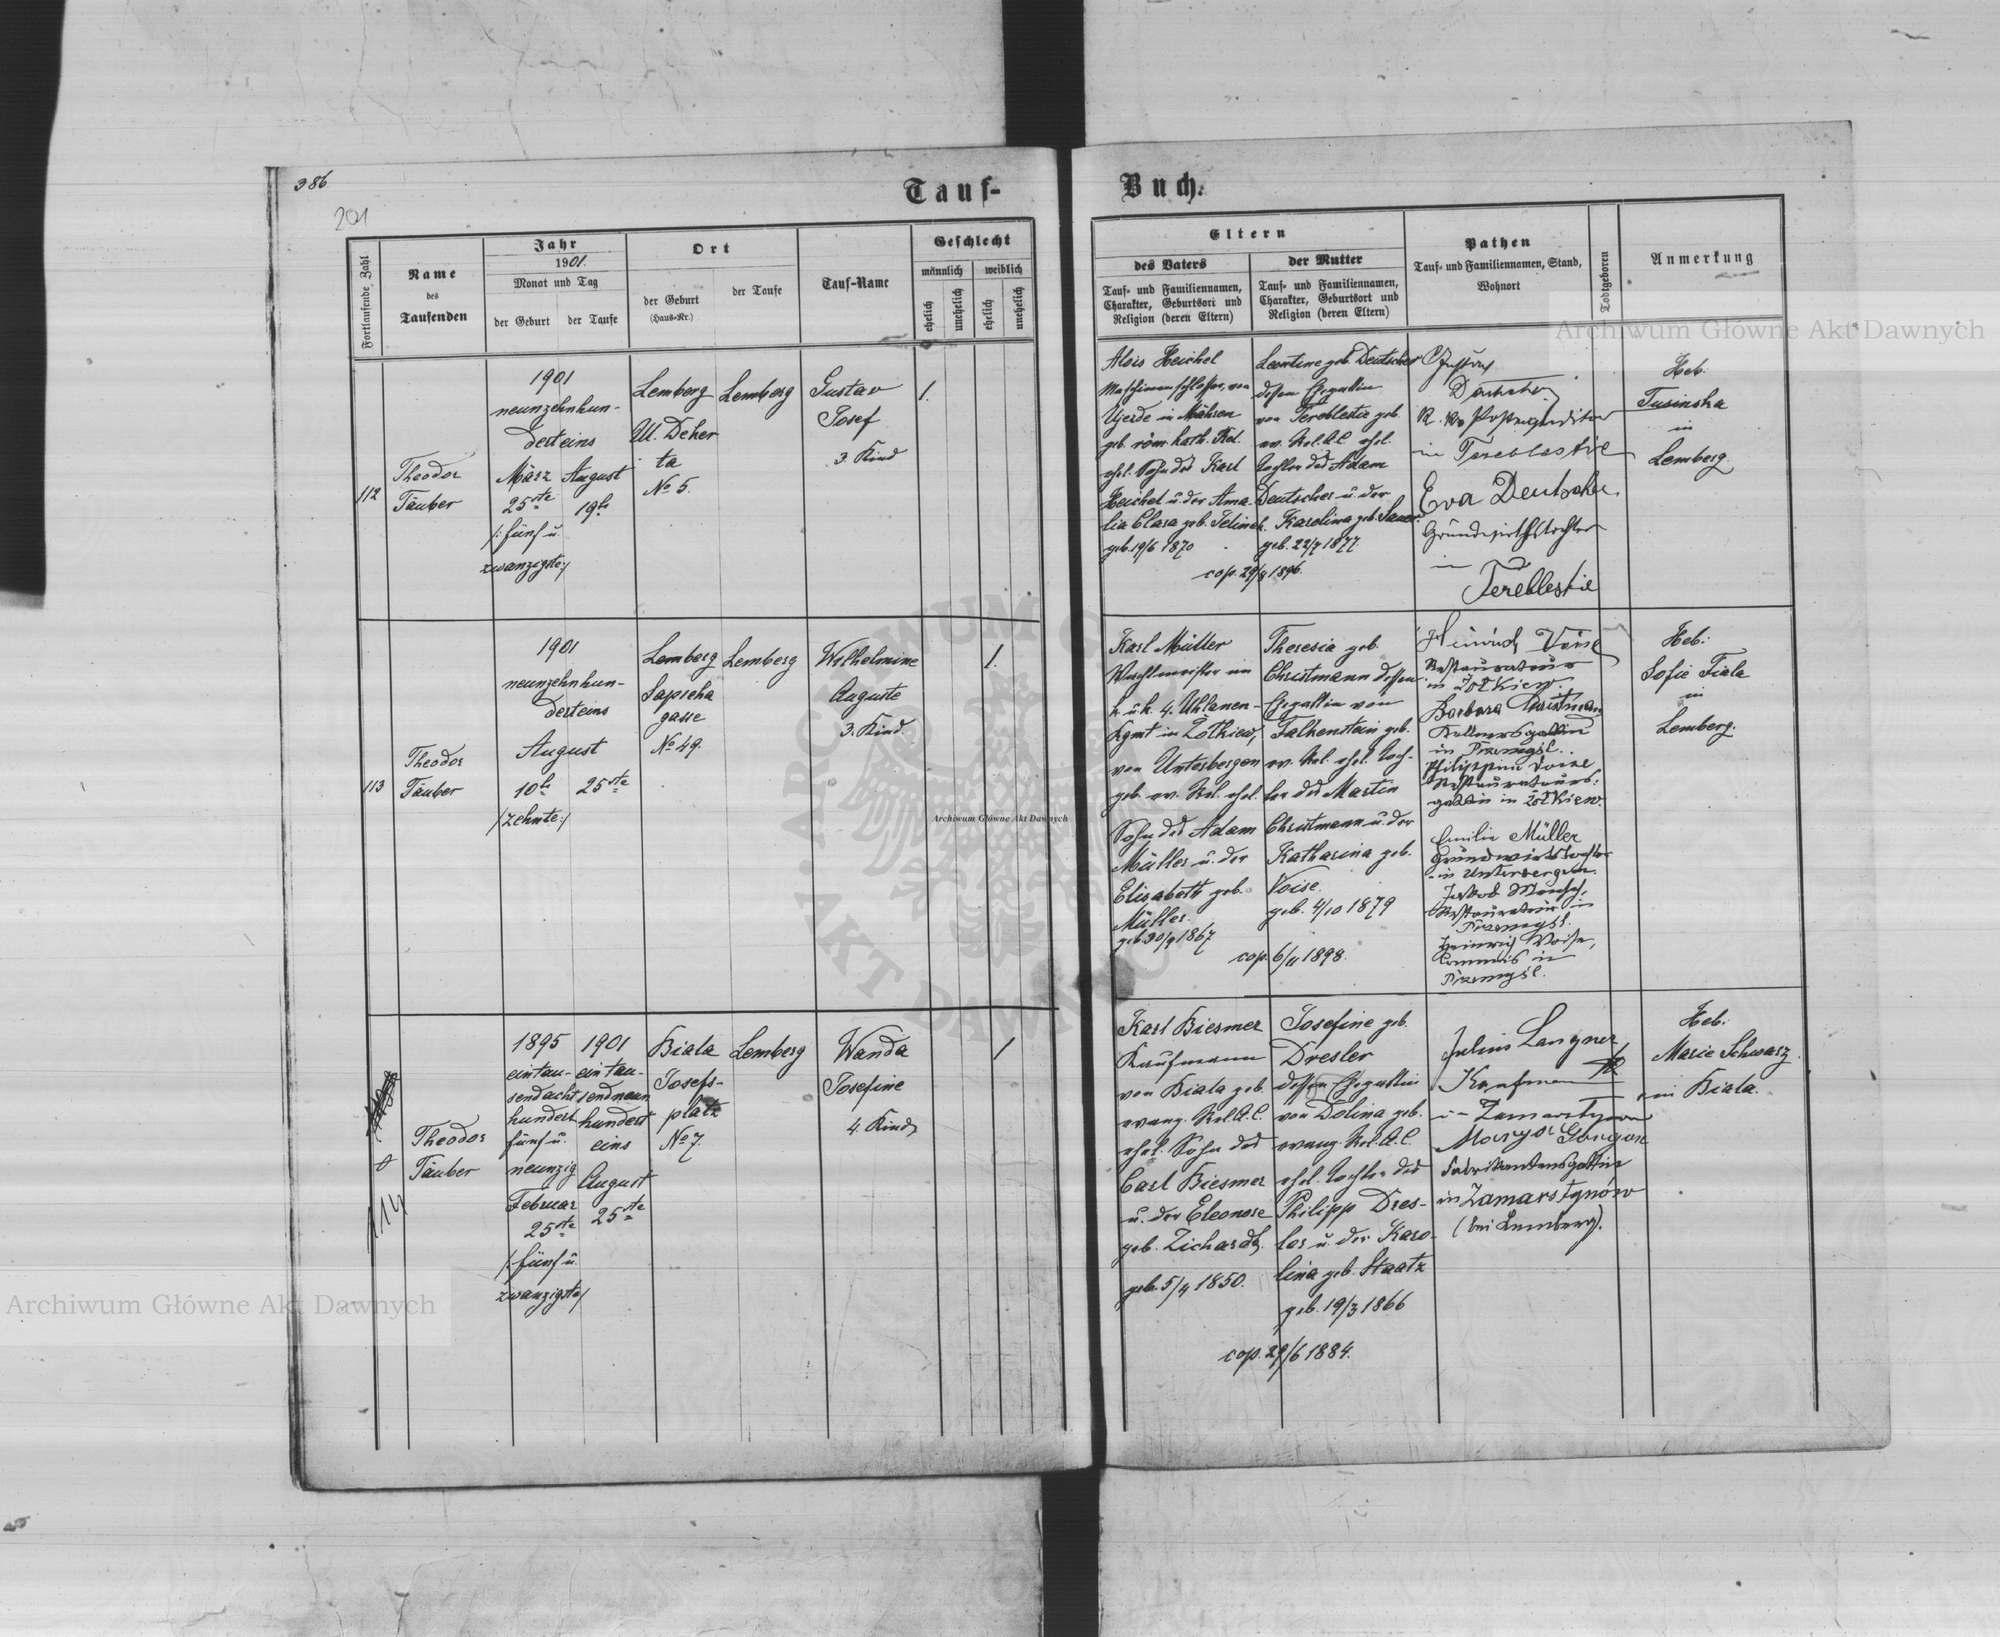 386
201
Tauf-
Buch.
Fortlaufende Zahl
Name
des
Taufenden
Jahr
1901.
Monat und Tag
der Geburt
der Taufe
Ort
der Geburt
(Haus-Nr.)
der Taufe
Tauf-Name
Geschlecht
männlich
weiblich
ehelich
unehelich
ehelich
unehelich
Eltern
des Vaters
Tauf- und Familiennamen,
Charakter, Geburtsort und
Religion (deren Eltern)
der Mutter
Tauf- und Familiennamen,
Charakter, Geburtsort und
Religion (deren Eltern)
Pathen
Tauf- und Familiennamen, Stand,
Wohnort
Todtgeboren
Anmerkung
112
Theodor
Täuber
1901
neunzehnhun-
derteins
März August
25ste 19te
/: fünf u.
zwanzigste:/
Lemberg
Ul. Deker
ta
No 5.
Lemberg
Gustav
Josef
3. Kind
1.
Alois Heichel
Maschinenschlosser, von
in Mähren
geb. röm. kath. Rel.
ehel. Sohn des Karl
Heichel u. der Ama-
lia Clara geb. Jelinek.
geb. 19/6 1870
Leontine geb. Deutscher
dessen Ehegattin
von Tereblestie geb.
ev. Rel. A.C. ehel.
Tochter des Adam
Deutscher u. der
Karolina geb. Sauer.
geb. 22/7 1877.
cop. 29/8 1896.
Gustav
Deutscher
in Tereblestie
Eva Deutscher,
Grundwirthstochter
in
Tereblestie
Heb:
Tusinska
in
Lemberg.
113
Theodor
Täuber
1901
neunzehnhun-
derteins
August
10te 25ste
/zehnte:/
Lemberg
Sapieha
gasse
No 49.
Lemberg
Wilhelmine
Auguste
3. Kind
1.
Karl Müller
Wachtmeister im
k. u. k. 4. Uhlanen-
Rgmt in Żółkiew,
von Unterbergen
geb. ev. Rel. ehel.
Sohn des Adam
Müller u. der
Elisabeth geb.
Müller.
geb. 30/9 1867
Theresia geb.
Christmann dessen
Ehegattin von
Falkenstein geb.
ev. Rel. ehel. Toch-
ter des Martin
Christmann u. der
Katharina geb.
Voise.
geb. 4/10 1879
cop. 6/11 1898.
Heinrich Voise
Restaurateur
in Żółkiew.
Barbara Christmann
Kellnersgattin
in Przemyśl.
Philippine Voise,
Restaurateurs-
gattin in Żółkiew.
Emilie Müller
Grundwirtstochter
in Unterbergen.
Jakob
Restaurateur in
Przemyśl.
Heinrich Voise,
Commis in
Przemyśl.
Heb:
Sofie Fiala
in
Lemberg.
114
Theodor
Täuber
1895 1901
eintau- eintau-
sendacht sendneun
hundert hundert
fünf u. eins
neunzig August
Februar 25ste
25ste
/: fünf u.
zwanzigste/
Biala
Josefs-
platz
No 7.
Lemberg
Wanda
Josefine
4. Kind
1
Karl Biesmer
Kaufmann
von Biala geb.
evang. Rel. A.C.
ehel. Sohn des
Carl Biesmer
u. der Eleonore
geb. Zichardt.
geb. 5/4 1850.
Josefine geb.
Dresler
dessen Ehegattin
von Dolina geb.
evang. Rel. A.C.
ehel. Tochter des
Philipp Dres-
ler u. der Karo-
lina geb. Staatz
geb. 19/3 1866
cop. 29/6 1884.
Julius Langner
Kaufmann
in Zamarstynow
Marya
Fabrikantensgattin
in Zamarstynów
(bei Lemberg).
Heb:
Marie Schwarz
in Biala.
Archiwum Główne Akt Dawnych
Archiwum Główne Akt Dawnych
Archiwum Główne Akt Dawnych
ARCHIWUM GŁÓWNE AKT DAWNYCH